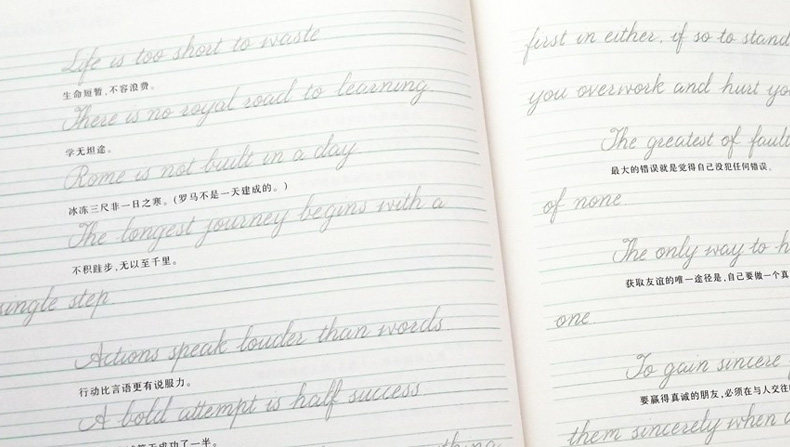 Life is too short to waste.
生命短暂,不容浪费。
There is no royal road to learning.
学无坦途。
Rome is not built in a day.
冰冻三尺非一日之寒。(罗马不是一天建成的。)
The longest journey begins with a
不积跬步,无以至千里。
single step.
Actions speak louder than words.
行动比言语更有说服力。
A bold attempt is half success.
成功了一半。
thing
first in either, if so to stand
you overwork and hurt
The greatest of
最大的错误就是觉得自己没犯任何错误。
of none.
The only way to
获取友谊的唯一途径是,自己要做一个真
one.
To gain sincere
要赢得真诚的朋友,必须在与人交往
them sincerely when